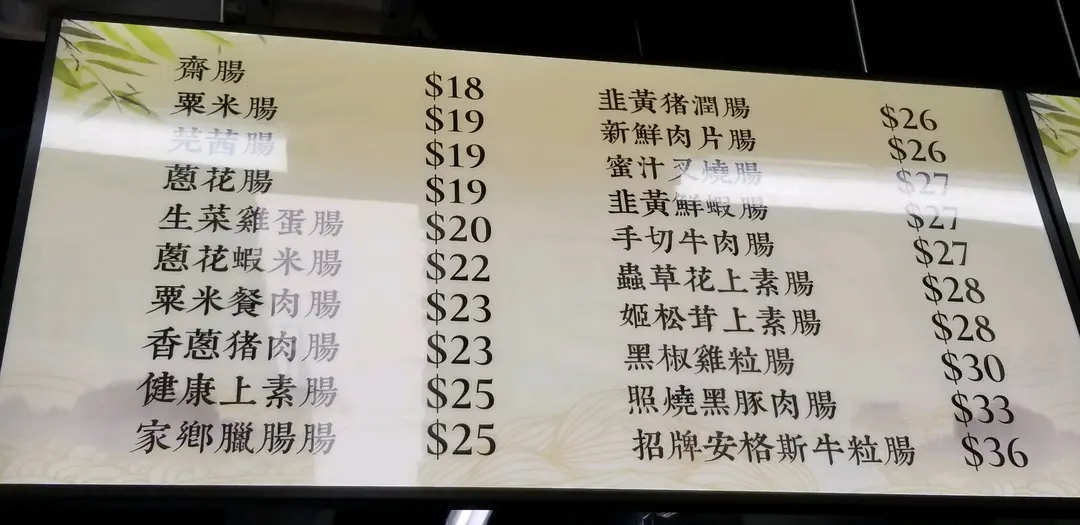 齋腸 $18
粟米腸 $19
芫茜腸 $19
蔥花腸 $19
生菜雞蛋腸 $20
蔥花蝦米腸 $22
粟米餐肉腸 $23
香蔥猪肉腸 $23
健康上素腸 $25
家鄉臘腸腸 $25
韭黃猪潤腸 $26
新鮮肉片腸 $26
蜜汁叉燒腸 $27
韭黃鮮蝦腸 $27
手切牛肉腸 $27
蟲草花上素腸 $28
姬松茸上素腸 $28
黑椒雞粒腸 $30
照燒黑豚肉腸 $33
招牌安格斯牛粒腸 $36